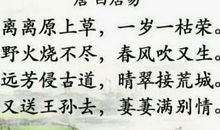 唐 白居易
离离原上草，一岁一枯荣。
野火烧不尽，春风吹又生。
远芳侵古道，晴翠接荒城。
又送王孙去，萋萋满别情。